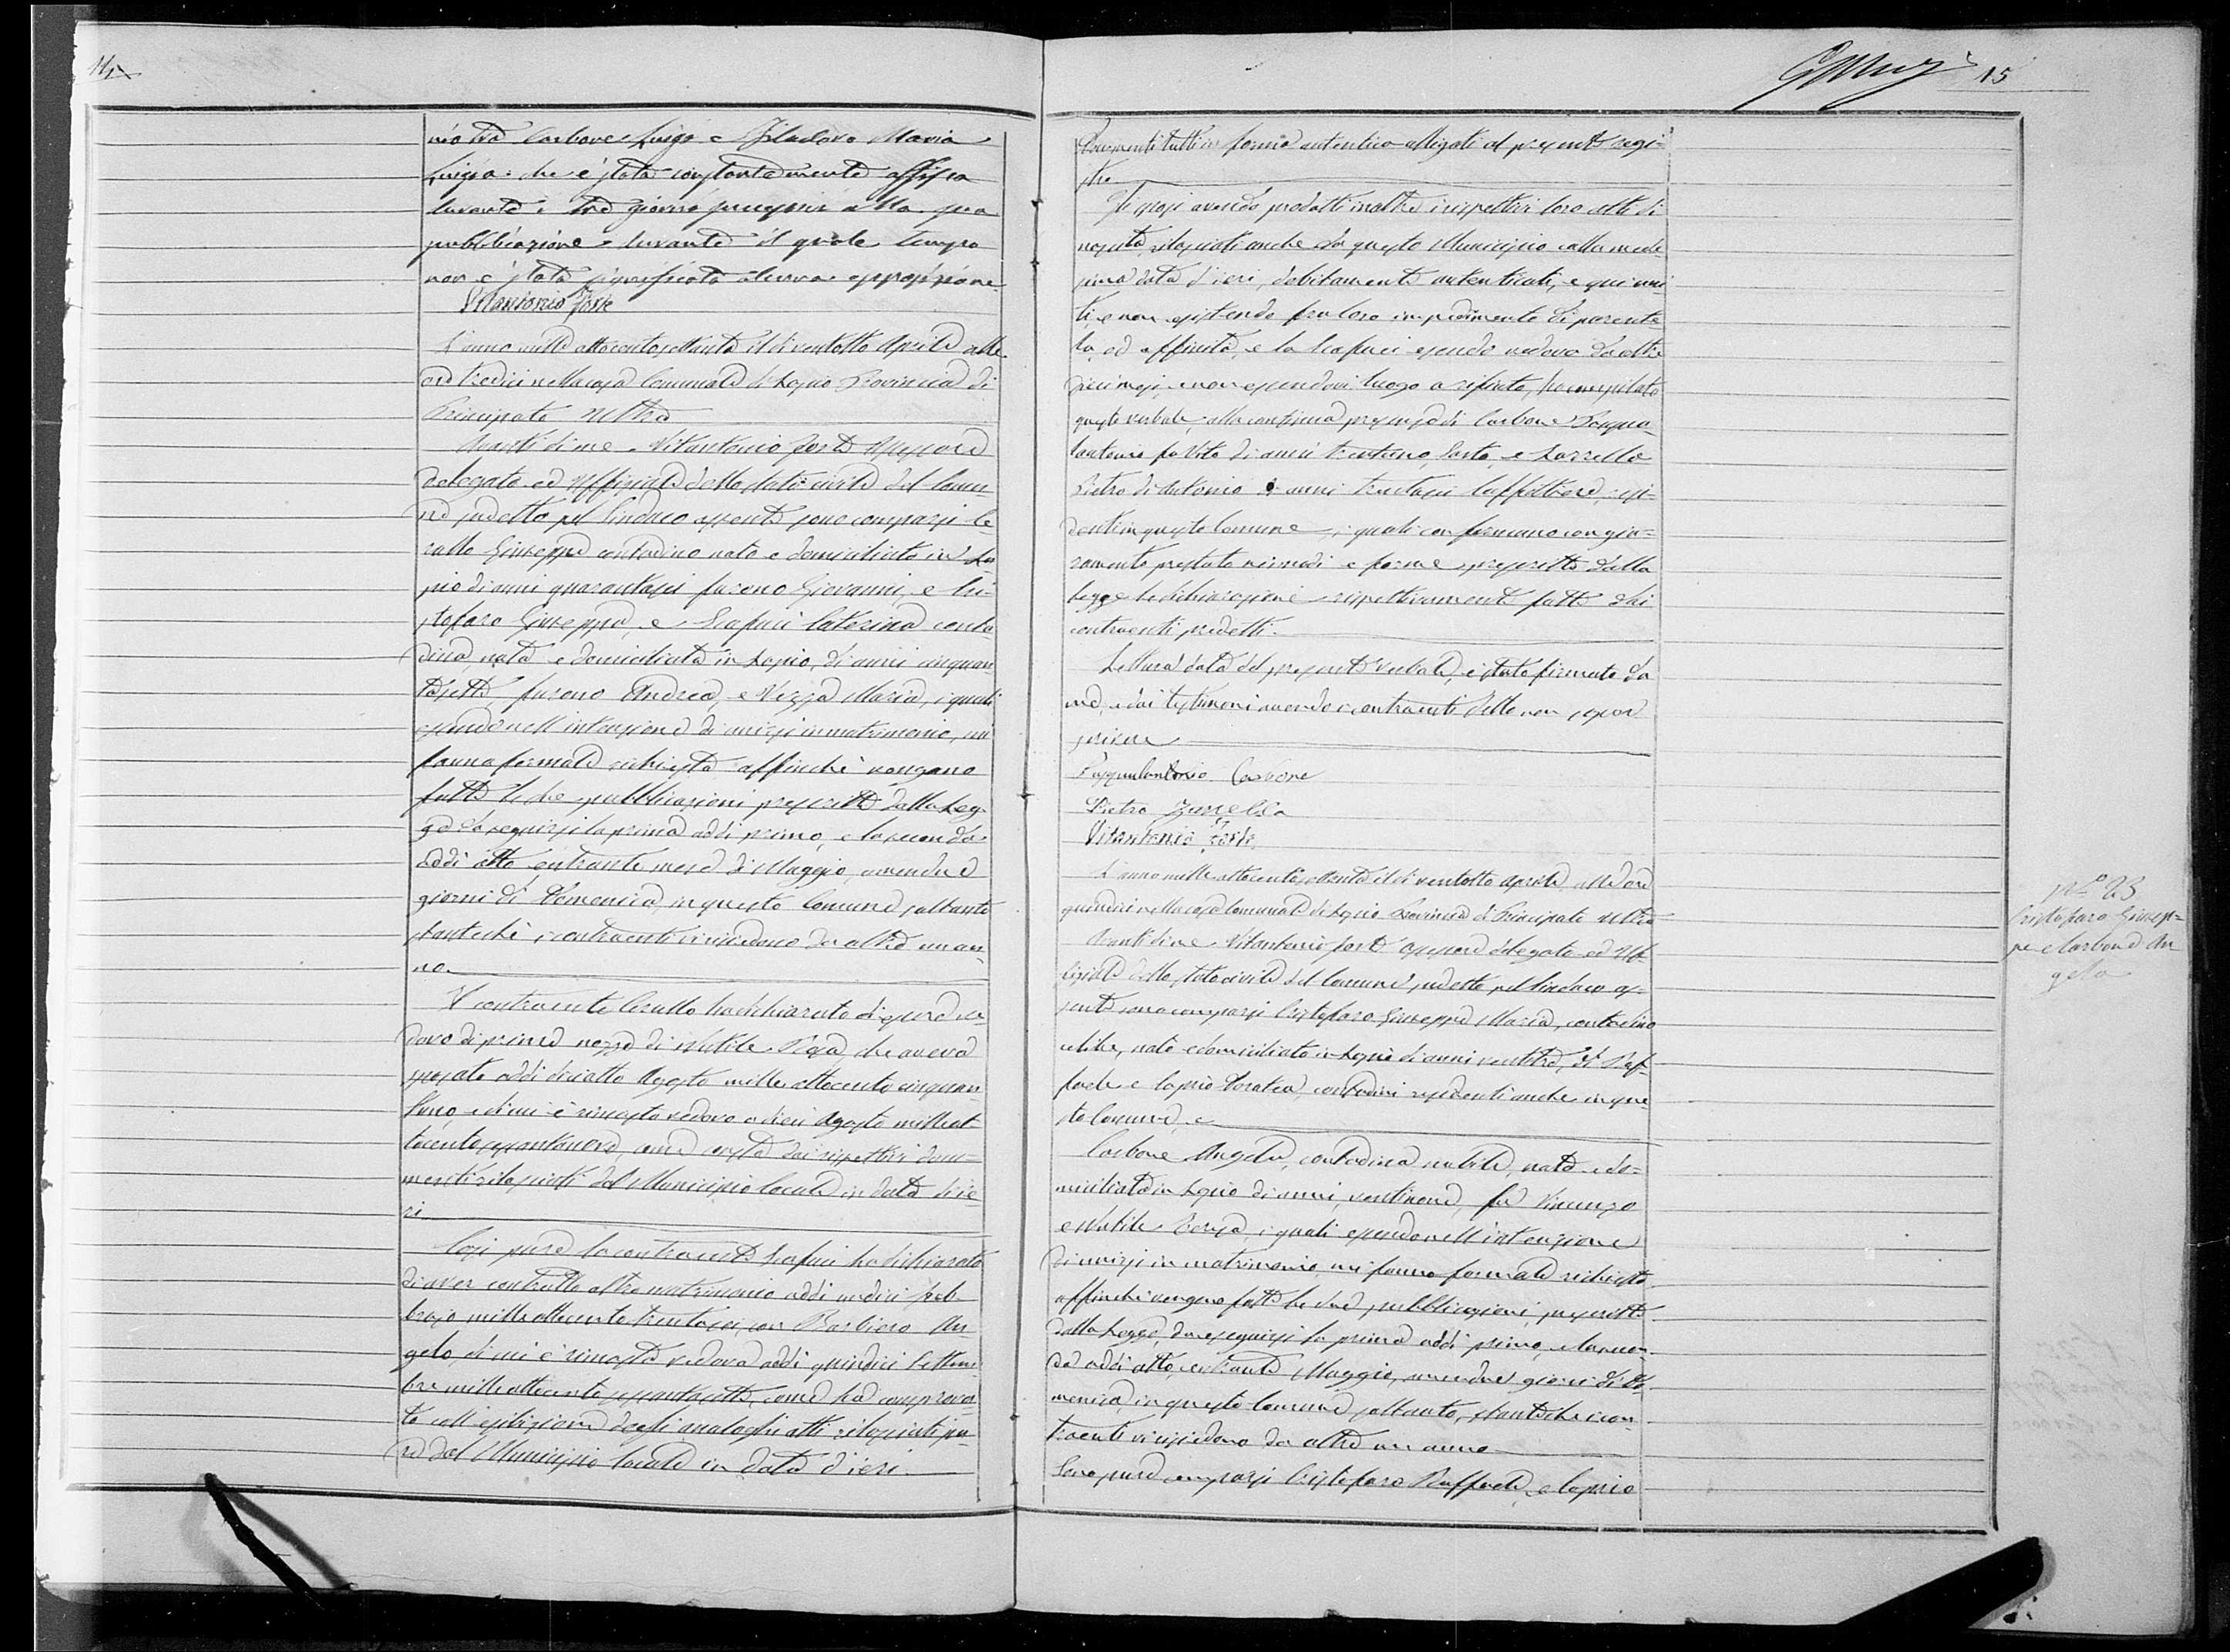 14
nio tra Carbone Luigi e Filadoro Maria
Luigia che è stata constantemente affissa
durante i tre giorni successivi alla sua
pubblicazione e durante il quale tempo
non è stata significata alcuna opposizione
Vitantonio Forte
L'anno mille ottocentosettanta il dì ventotto Aprile alle
ore tredici nella casa Comunale di Lapio Provincia di
Principato Ultra
Avanti di me Vitantonio Forte Assessore
delegato ed Uffiziale dello stato civile del Comu-
ne sudetto pel Sindaco assente sono comparsi Ce-
rullo Giuseppe contadino nato e domiciliato in La-
pio di anni quarantasei furono Giovanni, e Cri-
stofaro Giuseppa, e Scafuci Caterina conta-
dina, nata e domiciliata in Lapio, di anni cinquan-
tasette furono Andrea, e Nezza Maria, i quali
essendo nell'intenzione di unirsi in matrimonio, mi
fanno formale richiesta affinché vengano
fatte le due pubblicazioni prescritte dalla Leg-
ge da eseguirsi la prima addì primo, e la seconda
addì otto entrante mese di Maggio, amendue
giorni di Domenica, in questo Comune soltanto
stanteché i contraenti vi risiedono da oltre un an-
no
Il contraente Cerullo ha dichiarato di essere ve-
dovo di prime nozze di Natile Rosa che aveva
sposata addì diciotto Agosto mille ottocento cinquan-
tuno, e di cui è rimasto vedovo a dieci Agosto milleot-
tocentosessantanove, come consta dai rispettivi docu-
menti rilasciati dal Municipio locale in data di ie-
ri
Così pure la contraente Scafuci ha dichiarato
di aver contratto altro matrimonio addì undici Feb-
brajo mille ottocento trentasei, con Barbiero An-
gelo, di cui è rimasta vedova addì quindici Settem-
bre mille ottocento sessantasette, come ha comprova-
to coll'esibizione degli analoghi atti rilasciati pu-
re dal Municipio locale in data d'ieri.
15
Documenti tutti in forma autentica alligati al presente regi-
stro
Gli sposi avendo prodotti inoltre i rispettivi loro atti di
nascita, rilasciati anche da questo Municipio colla mede-
sima data d'ieri, debitamente autenticati, e qui uni-
ti, e non esistendo fra loro impedimento di parente-
la, od affinità, e la Scafuci essendo vedova da oltre
dieci mesi, e non essendovi luogo a rifiuto, ho compilato
questo verbale, alla continua presenza di Carbone Pasqua-
lantonio fu Vito di anni trentuno, Sarto, e
Pietro di Antonio di anni trentasei Caffettiere, resi-
denti in questo Comune, i quali confermano con giu-
ramento prestato nei modi e forme prescritte dalla
legge le dichiarazioni rispettivamente fatte dai
contraenti predetti.
Lettura data del presente Verbale, è stato firmato da
me, e dai testimoni avendo i contraenti detto non saper
scrivere
Pasqualantonio Carbone
Pietro
Vitantonio Forte
L'anno mille ottocentosettanta il dì ventotto Aprile alle ore
quindici nella casa Comunale di Lapio Provincia di Principato Ultra
Avanti di me Vitantonio Forte Assessore delegato ed Uf-
fiziale dello stato civile del Comune sudetto pel Sindaco as-
sente sono comparsi Cristofaro Giuseppe Maria, contadino
celibe, nato e domiciliato in Lapio di anni ventitre, di Raf-
faele e Caprio Doratea, contadini residenti anche in que-
sto Comune, e
Carbone Angela, contadina nubile, nata e do-
miciliata in Lapio di anni ventinove, fu Vincenzo
e Natile Teresa, i quali essendo nell'intenzione
di unirsi in matrimonio, mi fanno formale richiesta
affinché vengano fatte le due pubblicazioni prescritte
dalla Legge, da eseguirsi la prima addì primo, e la secon-
da addì otto, entrante Maggio, amendue giorni di Do-
menica, in questo Comune soltanto, stanteché i con-
traenti vi risiedono da oltre un anno
Sono pure comparsi Cristofaro Raffaele, e Caprio
N° 23
Cristofaro Giusep-
pe e Carbone An
gela